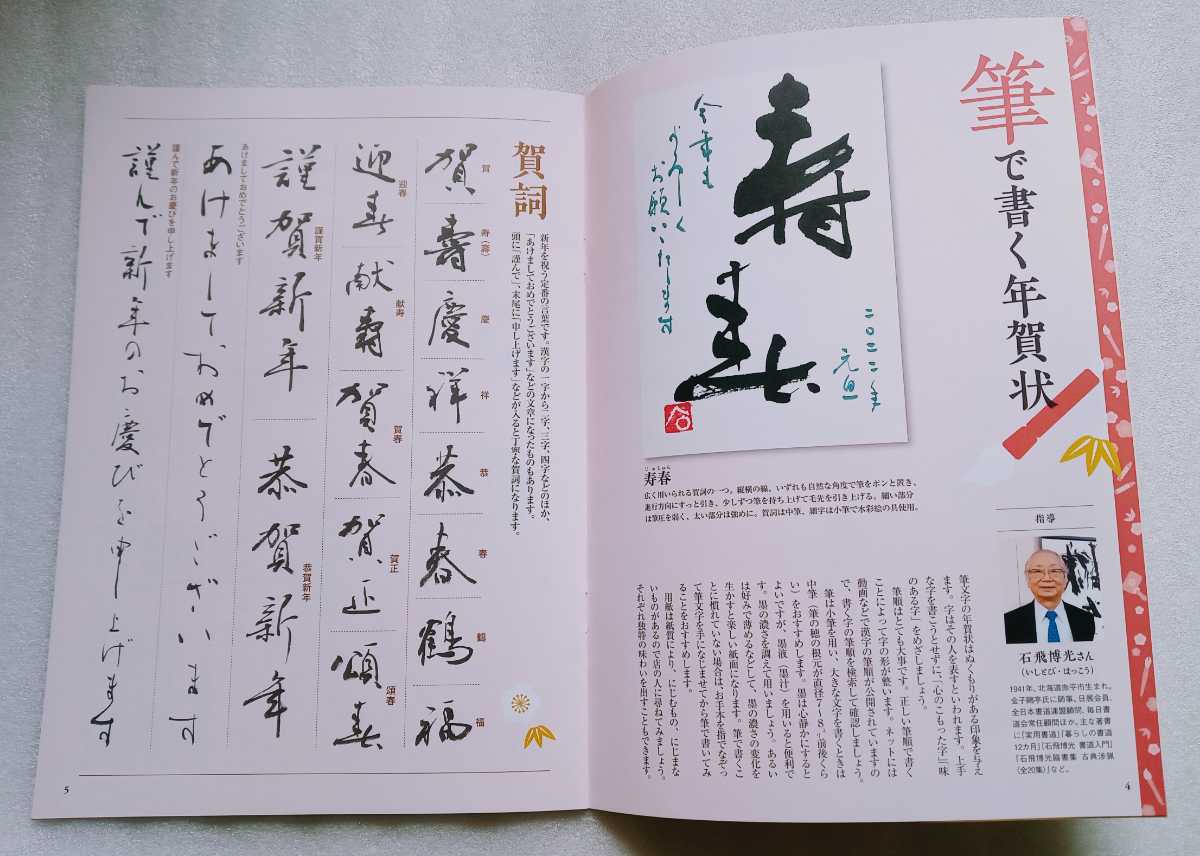 筆で書く年賀状
寿春
今年も
よろしく
お願いいたします
二〇二二年
元旦
じゅしゅん
寿春
広く用いられる賀詞の一つ。縦横の線、いずれも自然な角度で筆をポンと置き、
進行方向にすっと引き、少しずつ筆を持ち上げて毛先を引き上げる。細い部分
は筆圧を弱く、太い部分は強めに。賀詞は中筆、細字は小筆で水彩絵の具使用。
指導
石飛博光さん
（いしとび・はっこう）
1941年、北海道赤平市生まれ。
金子鷗亭氏に師事。日展会員、
全日本書道連盟顧問、毎日書
道会常任顧問ほか。主な著書
に『実用書道』『暮らしの書道
12カ月』『石飛博光 書道入門』
『石飛博光臨書集 古典渉猟
（全20集）』など。
筆文字の年賀状はぬくもりがある印象を与え
ます。字はその人を表すといわれます。上手
な字を書こうとせずに、「心のこもった字」「味
のある字」をめざしましょう。
筆順はとても大事です。正しい筆順で書く
ことによって字の形が整います。ネットには
動画などで漢字の筆順が公開されていますの
で、書く字の筆順を検索して確認しましょう。
筆は小筆を用い、大きな文字を書くときは
中筆（筆の穂の根元が直径7〜8㎜前後くら
い）をおすすめします。墨は心静かにすると
よいですが、墨液（墨汁）を用いると便利で
す。墨の濃さを調えて用いましょう。あるい
は好みで薄めるなどして、墨の濃さの変化を
生かすと楽しい紙面になります。筆で書くこ
とに慣れていない場合は、お手本を指でなぞっ
て筆文字を手になじませてから筆で書いてみ
ることをおすすめします。
用紙は紙質により、にじむもの、にじまな
いものがあるので店の人に尋ねてみましょう。
それぞれ独特の味わいを出すこともできます。
4
賀詞
新年を祝う定番の言葉です。漢字の一字から二字、三字、四字などのほか、
「あけましておめでとうございます」などの文章になったものもあります。
頭に「謹んで」、末尾に「申し上げます」などが入ると丁寧な賀詞になります。
賀 寿（壽） 慶 祥 恭 春 鶴 福
賀 壽 慶 祥 恭 春 鶴 福
迎春 献寿 賀春 賀正 頌春
迎春 献壽 賀春 賀正 頌春
謹賀新年 恭賀新年
謹賀新年 恭賀新年
あけましておめでとうございます
あけましておめでとうございます
謹んで新年のお慶びを申し上げます
謹んで新年のお慶びを申し上げます
5